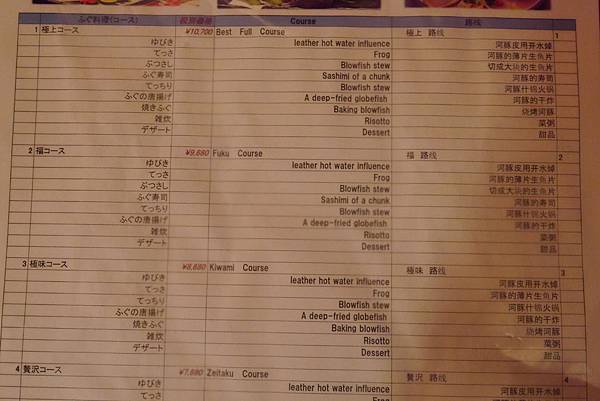 ふぐ料理(コース) 税別価格 Course 路线
1 極上コース ¥10,700 Best Full Course 極上 路线 1
ゆびき leather hot water influence 河豚皮用开水焯
てっさ Frog 河豚的薄片生鱼片
ぶつさし Blowfish stew 切成大块的生鱼片
ふぐ寿司 Sashimi of a chunk 河豚的寿司
てっちり Blowfish stew 河豚什锦火锅
ふぐの唐揚げ A deep-fried globefish 河豚的干炸
焼きふぐ Baking blowfish 烧烤河豚
雑炊 Risotto 菜粥
デザート Dessert 甜品
2 福コース ¥9,680 Fuku Course 福 路线 2
ゆびき leather hot water influence 河豚皮用开水焯
てっさ Frog 河豚的薄片生鱼片
ぶつさし Blowfish stew 切成大块的生鱼片
ふぐ寿司 Sashimi of a chunk 河豚的寿司
てっちり Blowfish stew 河豚什锦火锅
ふぐの唐揚げ A deep-fried globefish 河豚的干炸
雑炊 Risotto 菜粥
デザート Dessert 甜品
3 極味コース ¥8,680 Kiwami Course 極味 路线 3
ゆびき leather hot water influence 河豚皮用开水焯
てっさ Frog 河豚的薄片生鱼片
てっちり Blowfish stew 河豚什锦火锅
ふぐの唐揚げ A deep-fried globefish 河豚的干炸
焼きふぐ Baking blowfish 烧烤河豚
雑炊 Risotto 菜粥
デザート Dessert 甜品
4 贅沢コース ¥7,580 Zeitaku Course 贅沢 路线 4
ゆびき leather hot water influence 河豚皮用开水焯
てっさ Frog 河豚的薄片生鱼片